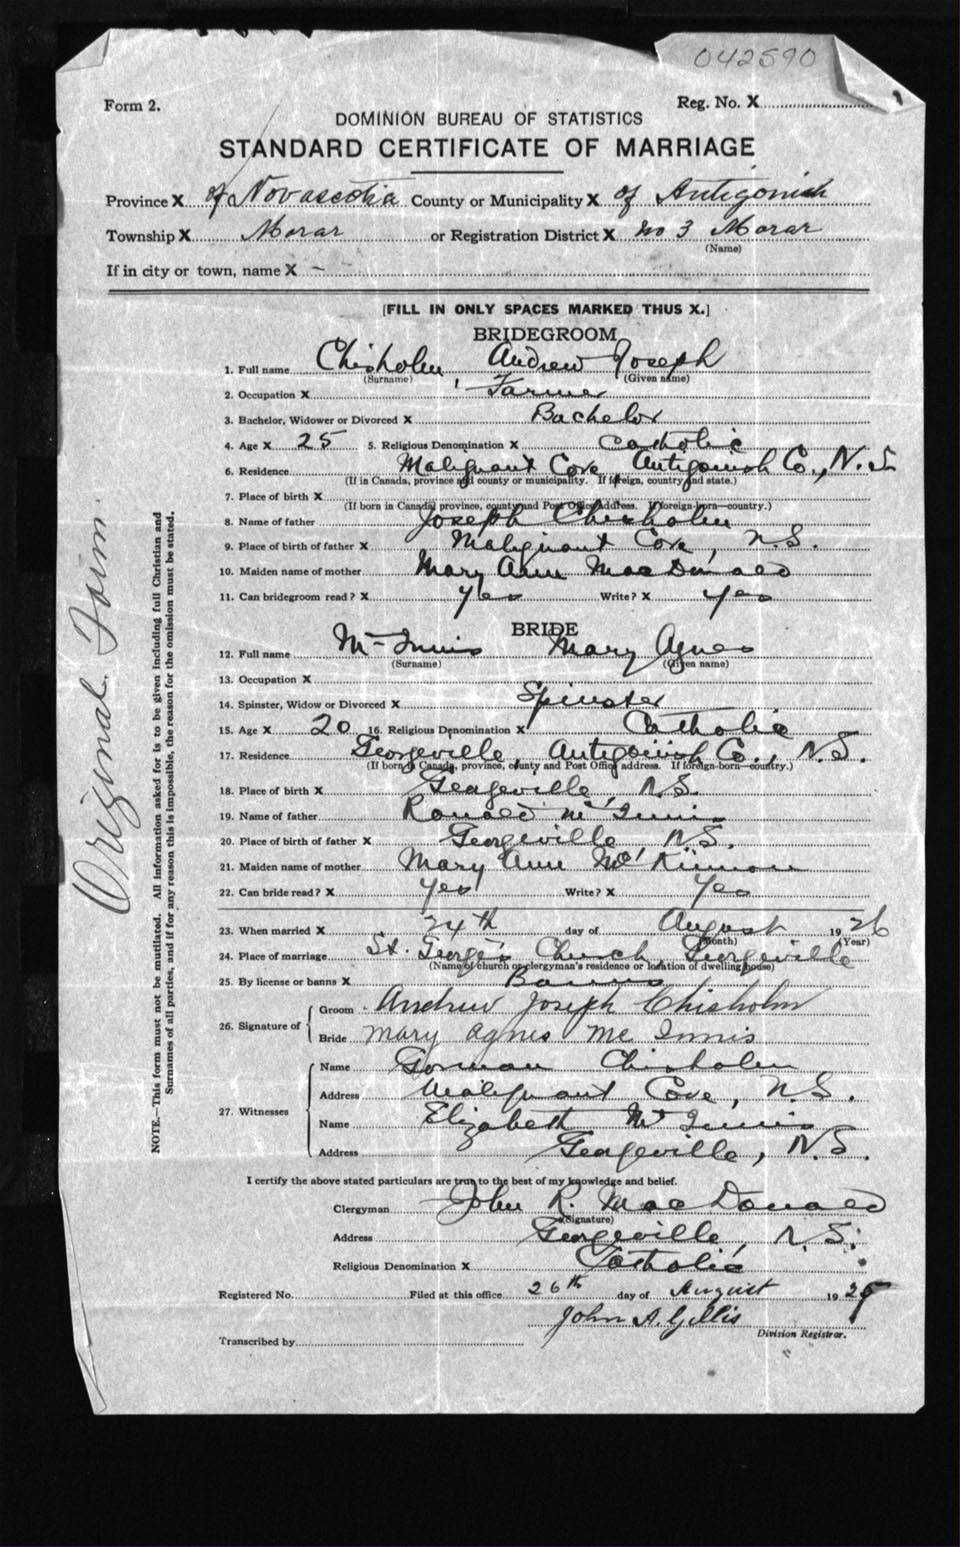 042590
Form 2.
Reg. No. X
DOMINION BUREAU OF STATISTICS
STANDARD CERTIFICATE OF MARRIAGE
Province X of Novascotia County or Municipality X of Antigonish
Township X Morar or Registration District X No 3 Morar
(Name)
If in city or town, name X –
[FILL IN ONLY SPACES MARKED THUS X.]
BRIDEGROOM
1. Full name Chisholm Andrew Joseph
(Surname) (Given name)
2. Occupation X Farmer
3. Bachelor, Widower or Divorced X Bachelor
4. Age X 25 5. Religious Denomination X Catholic
6. Residence Malignant Cove, Antigonish Co., N.S.
(If in Canada, province and county or municipality. If foreign, country and state.)
7. Place of birth X
(If born in Canada, province, county and Post Office address. If foreign-born—country.)
8. Name of father Joseph Chisholm
9. Place of birth of father X Malignant Cove, N.S.
10. Maiden name of mother Mary Ann MacDonald
11. Can bridegroom read? X Yes Write? X Yes
BRIDE
12. Full name McInnis Mary Agnes
(Surname) (Given name)
13. Occupation X
14. Spinster, Widow or Divorced X Spinster
15. Age X 20 16. Religious Denomination X Catholic
17. Residence Georgeville, Antigonish Co., N.S.
(If born in Canada, province, county and Post Office address. If foreign-born—country.)
18. Place of birth X Georgeville, N.S.
19. Name of father Ronald McInnis
20. Place of birth of father X Georgeville N.S.
21. Maiden name of mother Mary Ann McKinnon
22. Can bride read? X Yes Write? X Yes
23. When married X 24th day of August 1926
(Month) (Year)
24. Place of marriage St. George's Church, Georgeville
(Name of church or clergyman's residence or location of dwelling house)
25. By license or banns X Banns
26. Signature of
Groom Andrew Joseph Chisholm
Bride Mary Agnes McInnis
27. Witnesses
Name Gorman Chisholm
Address Malignant Cove, N.S.
Name Elizabeth McInnis
Address Georgeville, N.S.
I certify the above stated particulars are true to the best of my knowledge and belief.
Clergyman John R. MacDonald
(Signature)
Address Georgeville, N.S.
Religious Denomination X Catholic
Registered No. Filed at this office 26th day of August 19
John A. Gillis
Division Registrar.
Transcribed by
Original Form
NOTE.—This form must not be mutilated. All information asked for is to be given including full Christian and
Surnames of all parties, and if for any reason this is impossible, the reason for the omission must be stated.